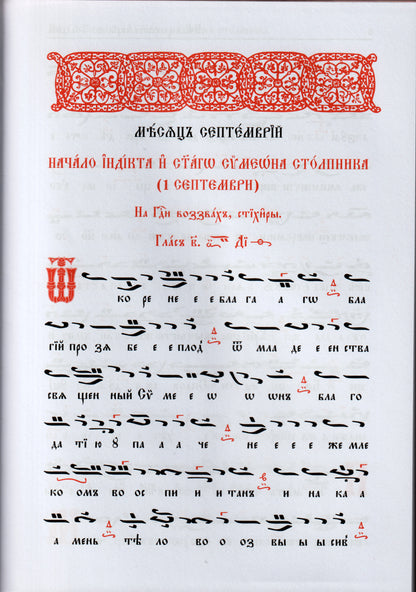 Мѣ́сѧцъ септе́мврїй
Нача́ло і҆нді́кта и҆ ст҃а́гѡ сѷмеѡ́на сто́лпника
(1 септември)
На Гдⷭ҇и воззва́хъ, стїхи̑ры.
Гла́съ в҃.
Ѿ ко ре не е е бла га а гѡ бла
гі́й про зѧ бе е е плод ѿ мла де е ен ства
свѧ ще́н ный Сѷ ме е ѡ ѡ ѡнъ бла го
да тї́ю ᲂу̑ па а а че не е е е же мле
ко омъ во ос пи и и танъ и на ка а
а мень тѣ ло во о оз вы ы ы сив